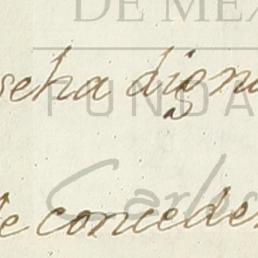 DE MÉX
se ha dign
FUNDA
Carlos
de conceder